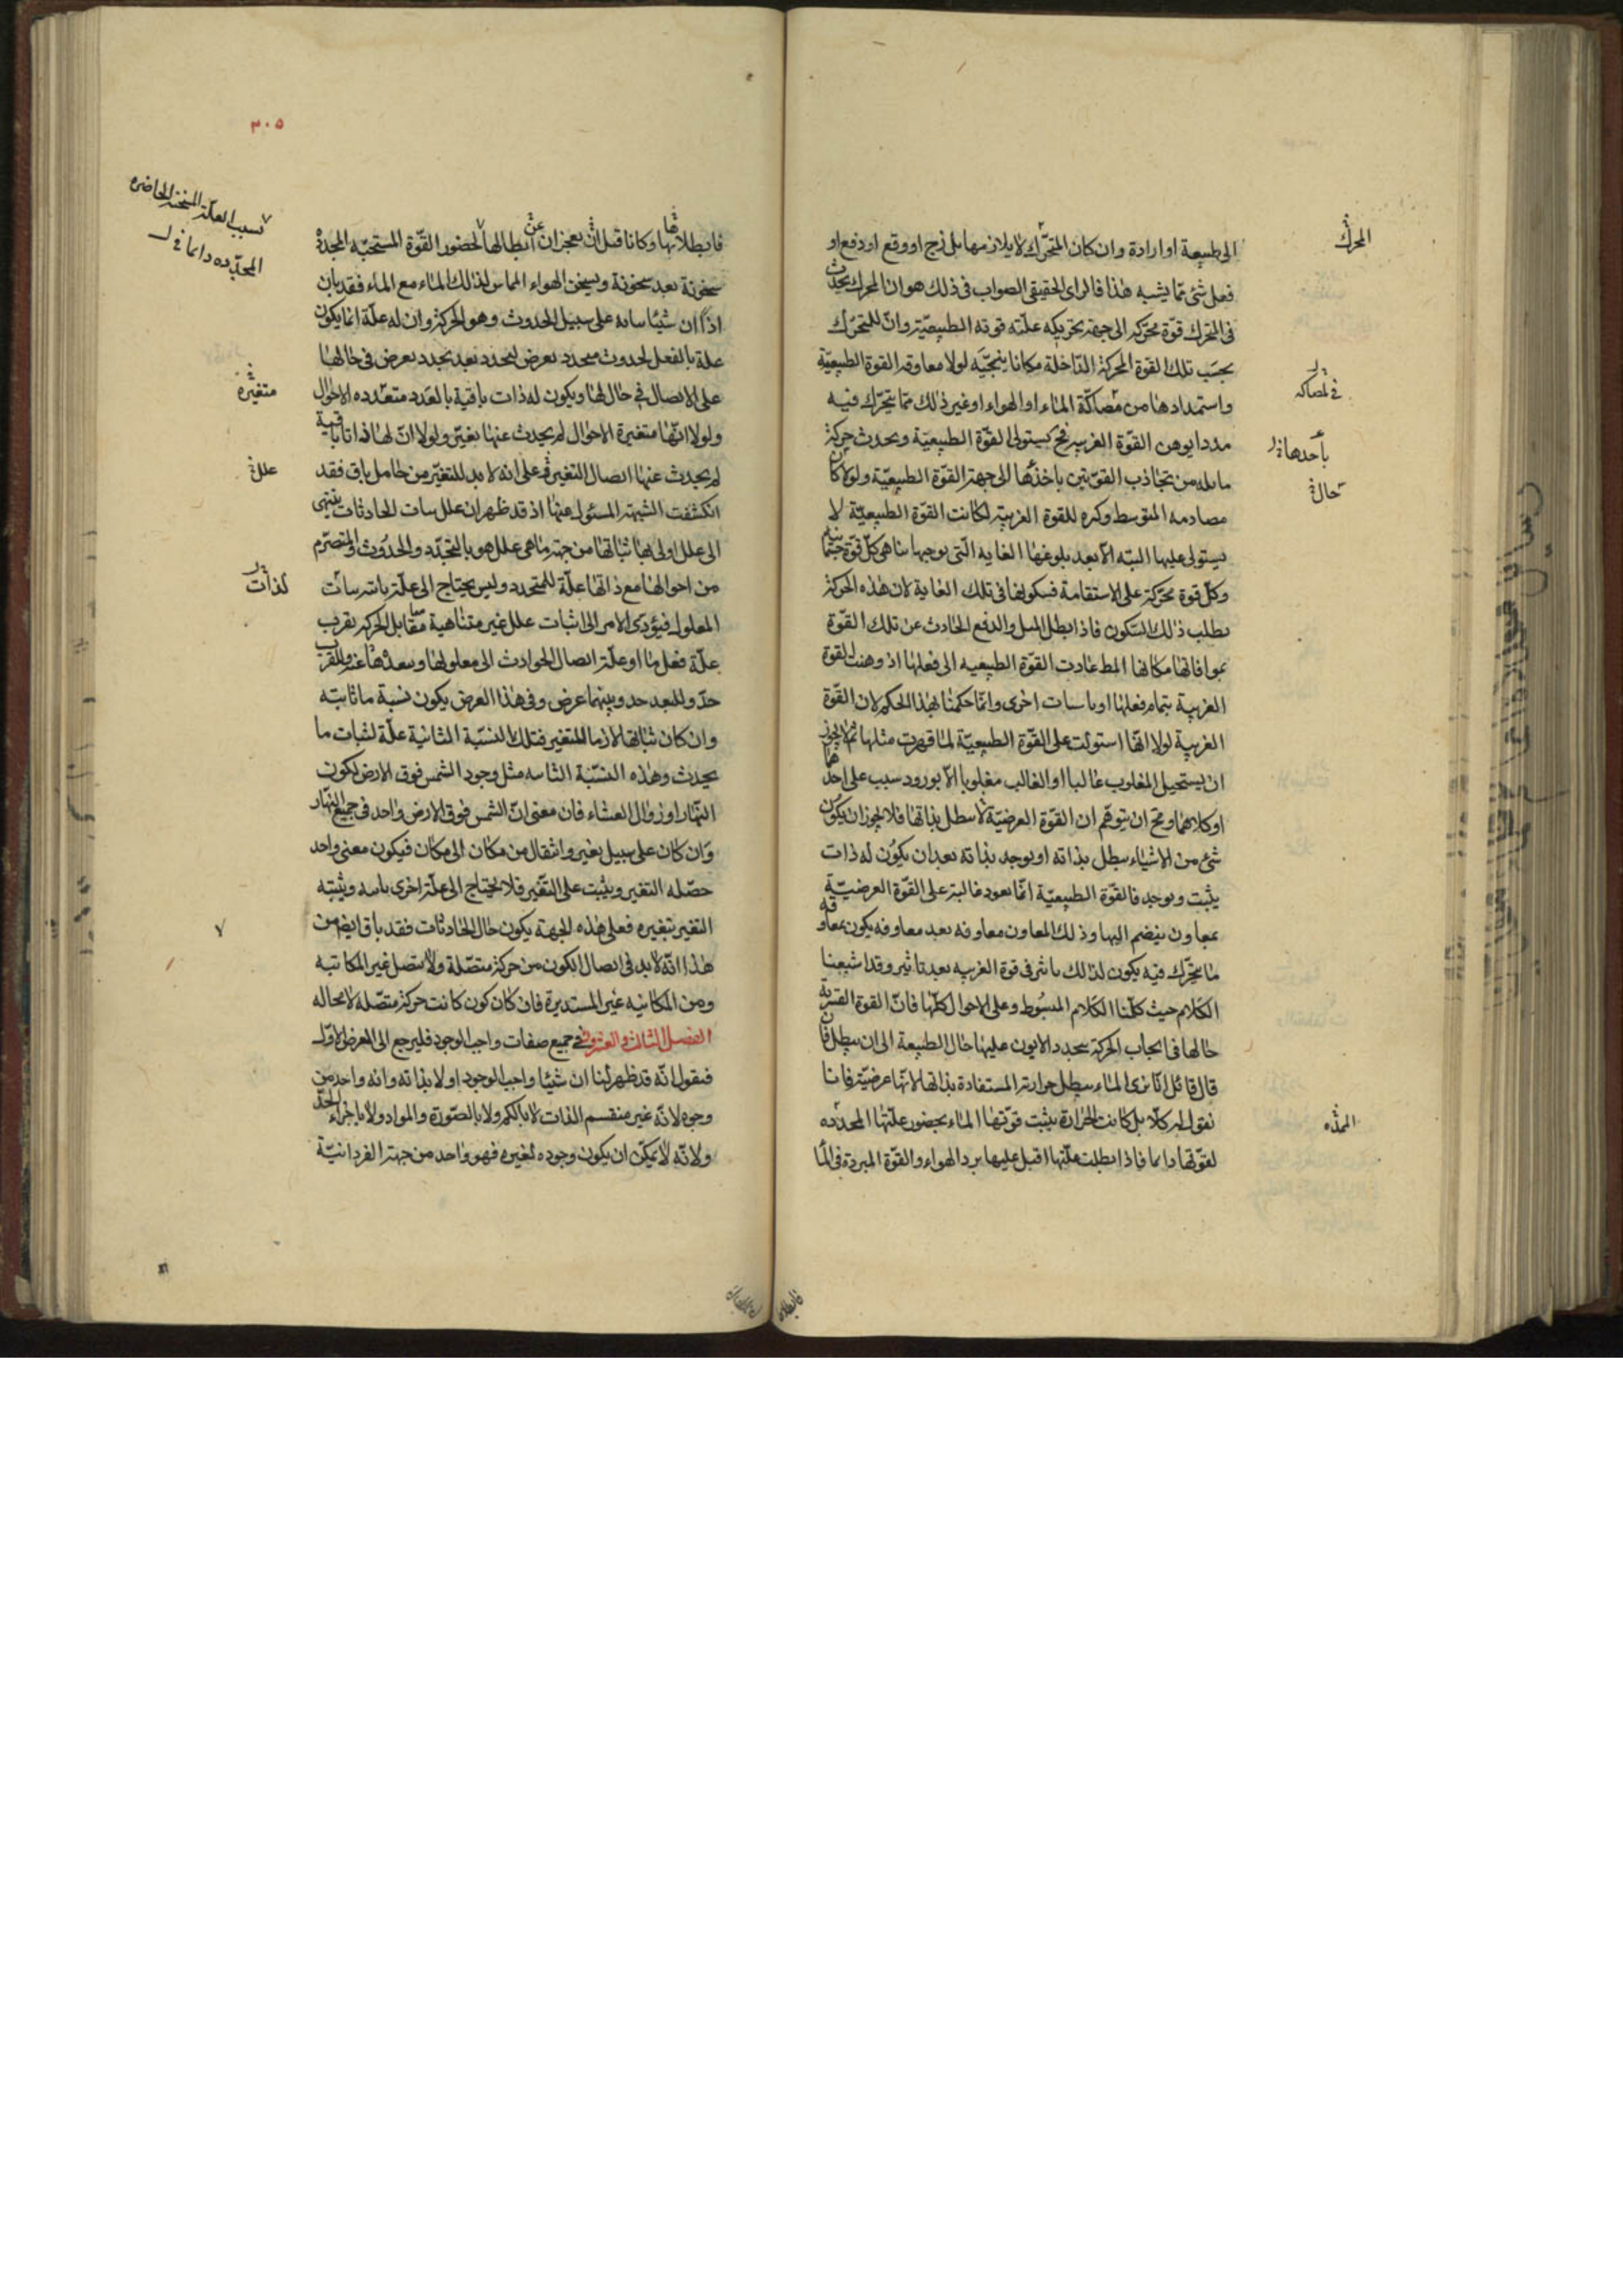 الى طبيعة او ارادة وان كان المتحرك لا يلازمها بل زج او وقع او دفع او
المحرك
فعل شئ مما يشبه هذا فالراى الحقيقى الصواب فى ذلك هو ان المحرك يحدث
فى المتحرك قوة محركه الى جهة تحريكه علته قوته الطبيعيّة وانّ للمتحرك
بحسب تلك القوة المحركة الداخلة مكانا ينتحيه لولا معاوقة القوة الطبيعيّة
فى لمصاكه
واستمدادها من مصاكّة الماء او الهواء او غير ذلك ممّا يتحرّك فيه
مددا يوهن القوّة الغريبه فح يستولى القوّة الطبيعيّة ويحدث حركة
بأحدها
مايله من تجاذب القوتين ياخذها الى جهة القوّة الطبيعيّة ولولا كان
حال
مصادمه المتوسط وكره للقوة الغريبة لكانت القوّة الطبيعيّة لا
يستولى عليها البته الا بعد بلوغها الغايه الّتى يوجبها تناهى كلّ قوة جسمانية
وكلّ قوة محركة على الاستقامة فسكونها فى تلك الغاية لان هذه الحركة
يطلب ذلك السكون فاذا بطل الميل والدفع الحادث عن تلك القوّة
بموافاتها مكانها المط عادت القوّة الطبيعيه الى فعلها اذ وهنت القوة
الغريبة بتمام فعلها او باسباب اخرى وانّما حكمنا بهذا الحكم لان القوّة
الغريبة لولا انّها استولت على القوّة الطبيعيّة لما قهرت مثلها ثم لا يجوز
ان يستحيل المغلوب غالبا او الغالب مغلوبا الا بورود سبب على احدهما
او كلاهما ومح ان يتوهم ان القوّة العرضيّة تبطل بذاتها فلا يجوز ان يكون
شئ من الاشياء يبطل بذاته او يوجد بذاته بعد ان يكون له ذات
يثبت ويوجد فالقوّة الطبيعيّة انّما يعود غالبة على القوّة العرضيّة
بمعاون ينضم اليها وذلك المعاون معاوقه بعد معاوقه يكون بمعاوقه
ما يتحرّك فيه يكون لذلك تاثر فى قوة الغريبه بعد تاثير وقد اشبعنا
الكلام حيث كلّنا الكلام المبسوط وعلى الاحوال كلّها فانّ القوة القسرية
حالها فى ايجاب الحركة بتجدد الايون عليها حال الطبيعة الى ان يبطل فان
قال قائل انّا نرى الماء يبطل حرارته المستفادة بذاتها لانّها عرضيّة فانا
نقول له كلا بل كانت الحرارة يثبت قوّتها الماء بحضور علّتها المجدّده
الممدّه
لقوّتها دائما فاذا بطلت علّتها اقبل عليها برد الهواء والقوّة المبردة فى الما
٣٠٥
بسبب العلة المسخنة الحاضره
المجدّده دائما
فابطلاها وكانا قبل ان يعجزان عن ابطالها لحضور القوّة المسخنة المجددة
سخونة بعد سخونة ويسخن الهواء المماس لذلك الماء مع الماء فقد بان
اذا ان شيئا ساله على سبيل الحدوث وهو الحركة وان له علّة انما يكون
علة بالفعل لحدوث متجدد يعرض لتجدد بعد تجدد يعرض فى حالها
متغيّره
على الاتصال فى حال لها ويكون له ذات باقية بالعدد متعدّده الاحوال
ولولا انّها متغيرة الاحوال لم يحدث عنها تغيّر ولولا انّ لها ذاتا باقية
علل
لم يحدث عنها اتصال التغير وعلى انه لا بد للتغيّر من حامل باق فقد
انكشفت الشبهة المسئول عنها اذ قد ظهر ان علل ثبات الحادثات ينتهى
الى علل اولى لها ثباتها من جهة ما هى علل هو بالتجدّد والحدوث والتصرّم
لذات
من احوالها مع ذاتها علّة للمتجدد وليس يحتاج الى علّة ثابتة ثبات
المعلول فيؤدى الامر الى اثبات علل غير متناهية مقابل الحركة يقرب
علّة فعل ما او علّة اتصال الحوادث الى معلولها وبعدها عنه وللقرب
حدّ وللبعد حد وبينهما عرض وفى هذا العرض يكون نسبة ما ثابته
وان كان ثباتها لازما للتغير فتلك النسبة الثانية علّة لثبات ما
يحدث وهذه النسبة الثابته مثل وجود الشمس فوق الارض لكون
النهار او زوال العشاء فان معنى انّ الشمس فوق الارض واحد فى جميع النهار
وان كان على سبيل تغير وانتقال من مكان الى مكان فيكون معنى واحد
حصّله التغير ويثبت على التغير فلا يحتاج الى علة اخرى ثابته ويثبته
التغير بتغيره فعلى هذه الجهة يكون حال الحادثات فقد بان ايضا من
هذا انّه لا بد فى اتصال الكون من حركة متصّلة ولا متصل غير المكانيه
ومن المكانيه غير المستديرة فان كان كون كانت حركة متصّله لا محاله
الفصل الثالث والعشرون فى جميع صفات واجب الوجود فليرجع الى الغرض الاول
فنقول انّه قد ظهر لنا ان شيئا واجب الوجود اولا بذاته وانه واحد من
وجوه لانّه غير منقسم الذات لا بالكم ولا بالصّورة والمواد ولا باجزاء الحدّ
ولانّه لا يمكن ان يكون وجوده لغيره فهو واحد من جهة الفردانيّة